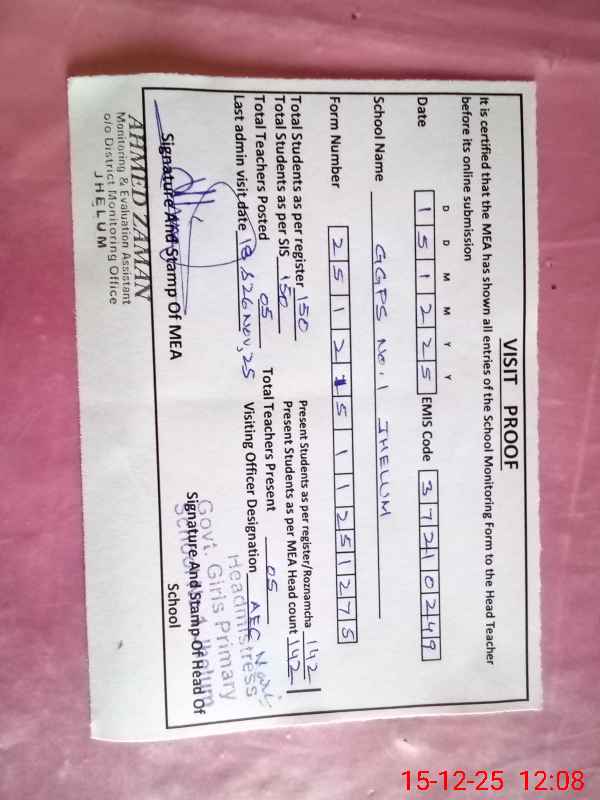 VISIT PROOF
It is certified that the MEA has shown all entries of the School Monitoring Form to the Head Teacher
before its online submission
D D M M Y Y
Date 1 5 1 2 2 5 EMIS Code 3 7 2 1 0 2 4 9
School Name GGPS No: 1 JHELUM
Form Number 2 5 1 2 1 5 1 1 2 5 1 2 7 5
Total Students as per register 150 Present Students as per register/Roznamcha 142
Total Students as per SIS 150 Present Students as per MEA Head count 142
Total Teachers Posted 05 Total Teachers Present 05
Last admin visit date 18, &26 Nov, 25 Visiting Officer Designation AEO
Signature And Stamp Of MEA Signature And Stamp Of Head Of
School
AHMED ZAMAN
Monitoring & Evaluation Assistant
o/o District Monitoring Office
JHELUM
Headmistress
Govt. Girls Primary
School No. 1 Jhelum
15-12-25 12:08